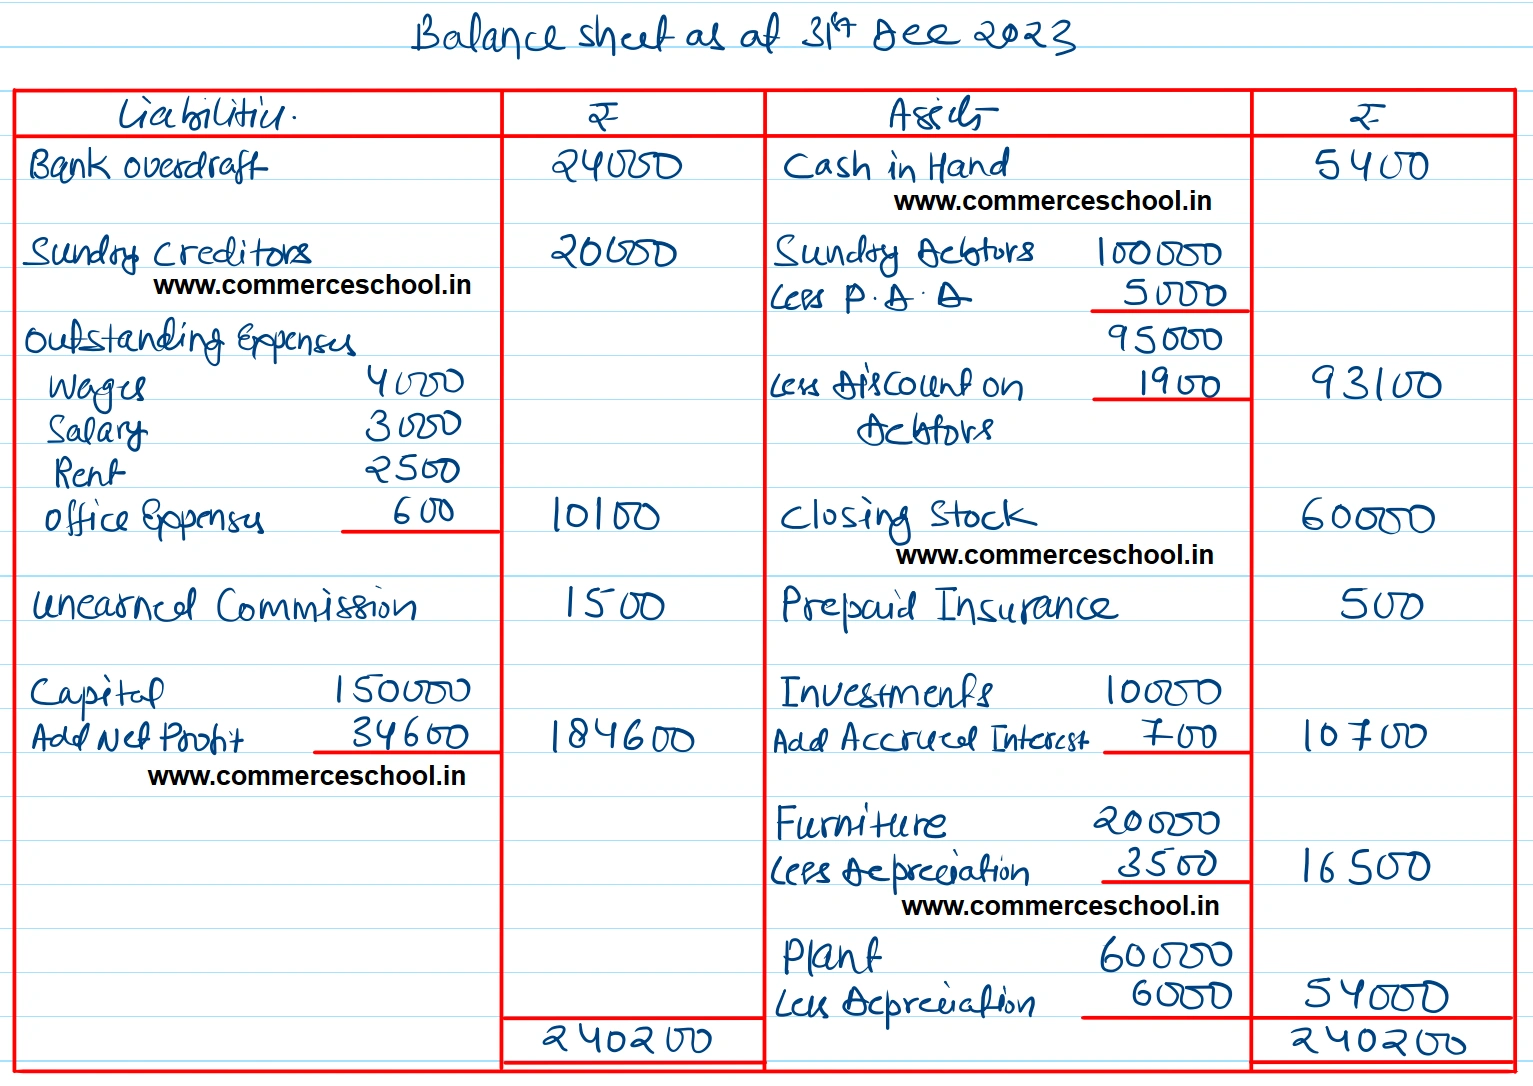 Balance sheet as at 31st Dec 2023
Liabilities. ₹ Assets ₹
Bank overdraft 24000 Cash in Hand 5400
www.commerceschool.in
Sundry Creditors 20000 Sundry Debtors 100000
www.commerceschool.in
Less P.D.D 5000
Outstanding Expenses 95000
Wages 4000 Less Discount on 1900 93100
Salary 3000 Debtors
Rent 2500
Office Expenses 600 10100 Closing Stock 60000
www.commerceschool.in
Unearned Commission 1500 Prepaid Insurance 500
Capital 150000 Investments 10000
Add Net Profit 34600 184600 Add Accrued Interest 700 10700
www.commerceschool.in
Furniture 20000
Less Depreciation 3500 16500
www.commerceschool.in
Plant 60000
Less Depreciation 6000 54000
240200 240200